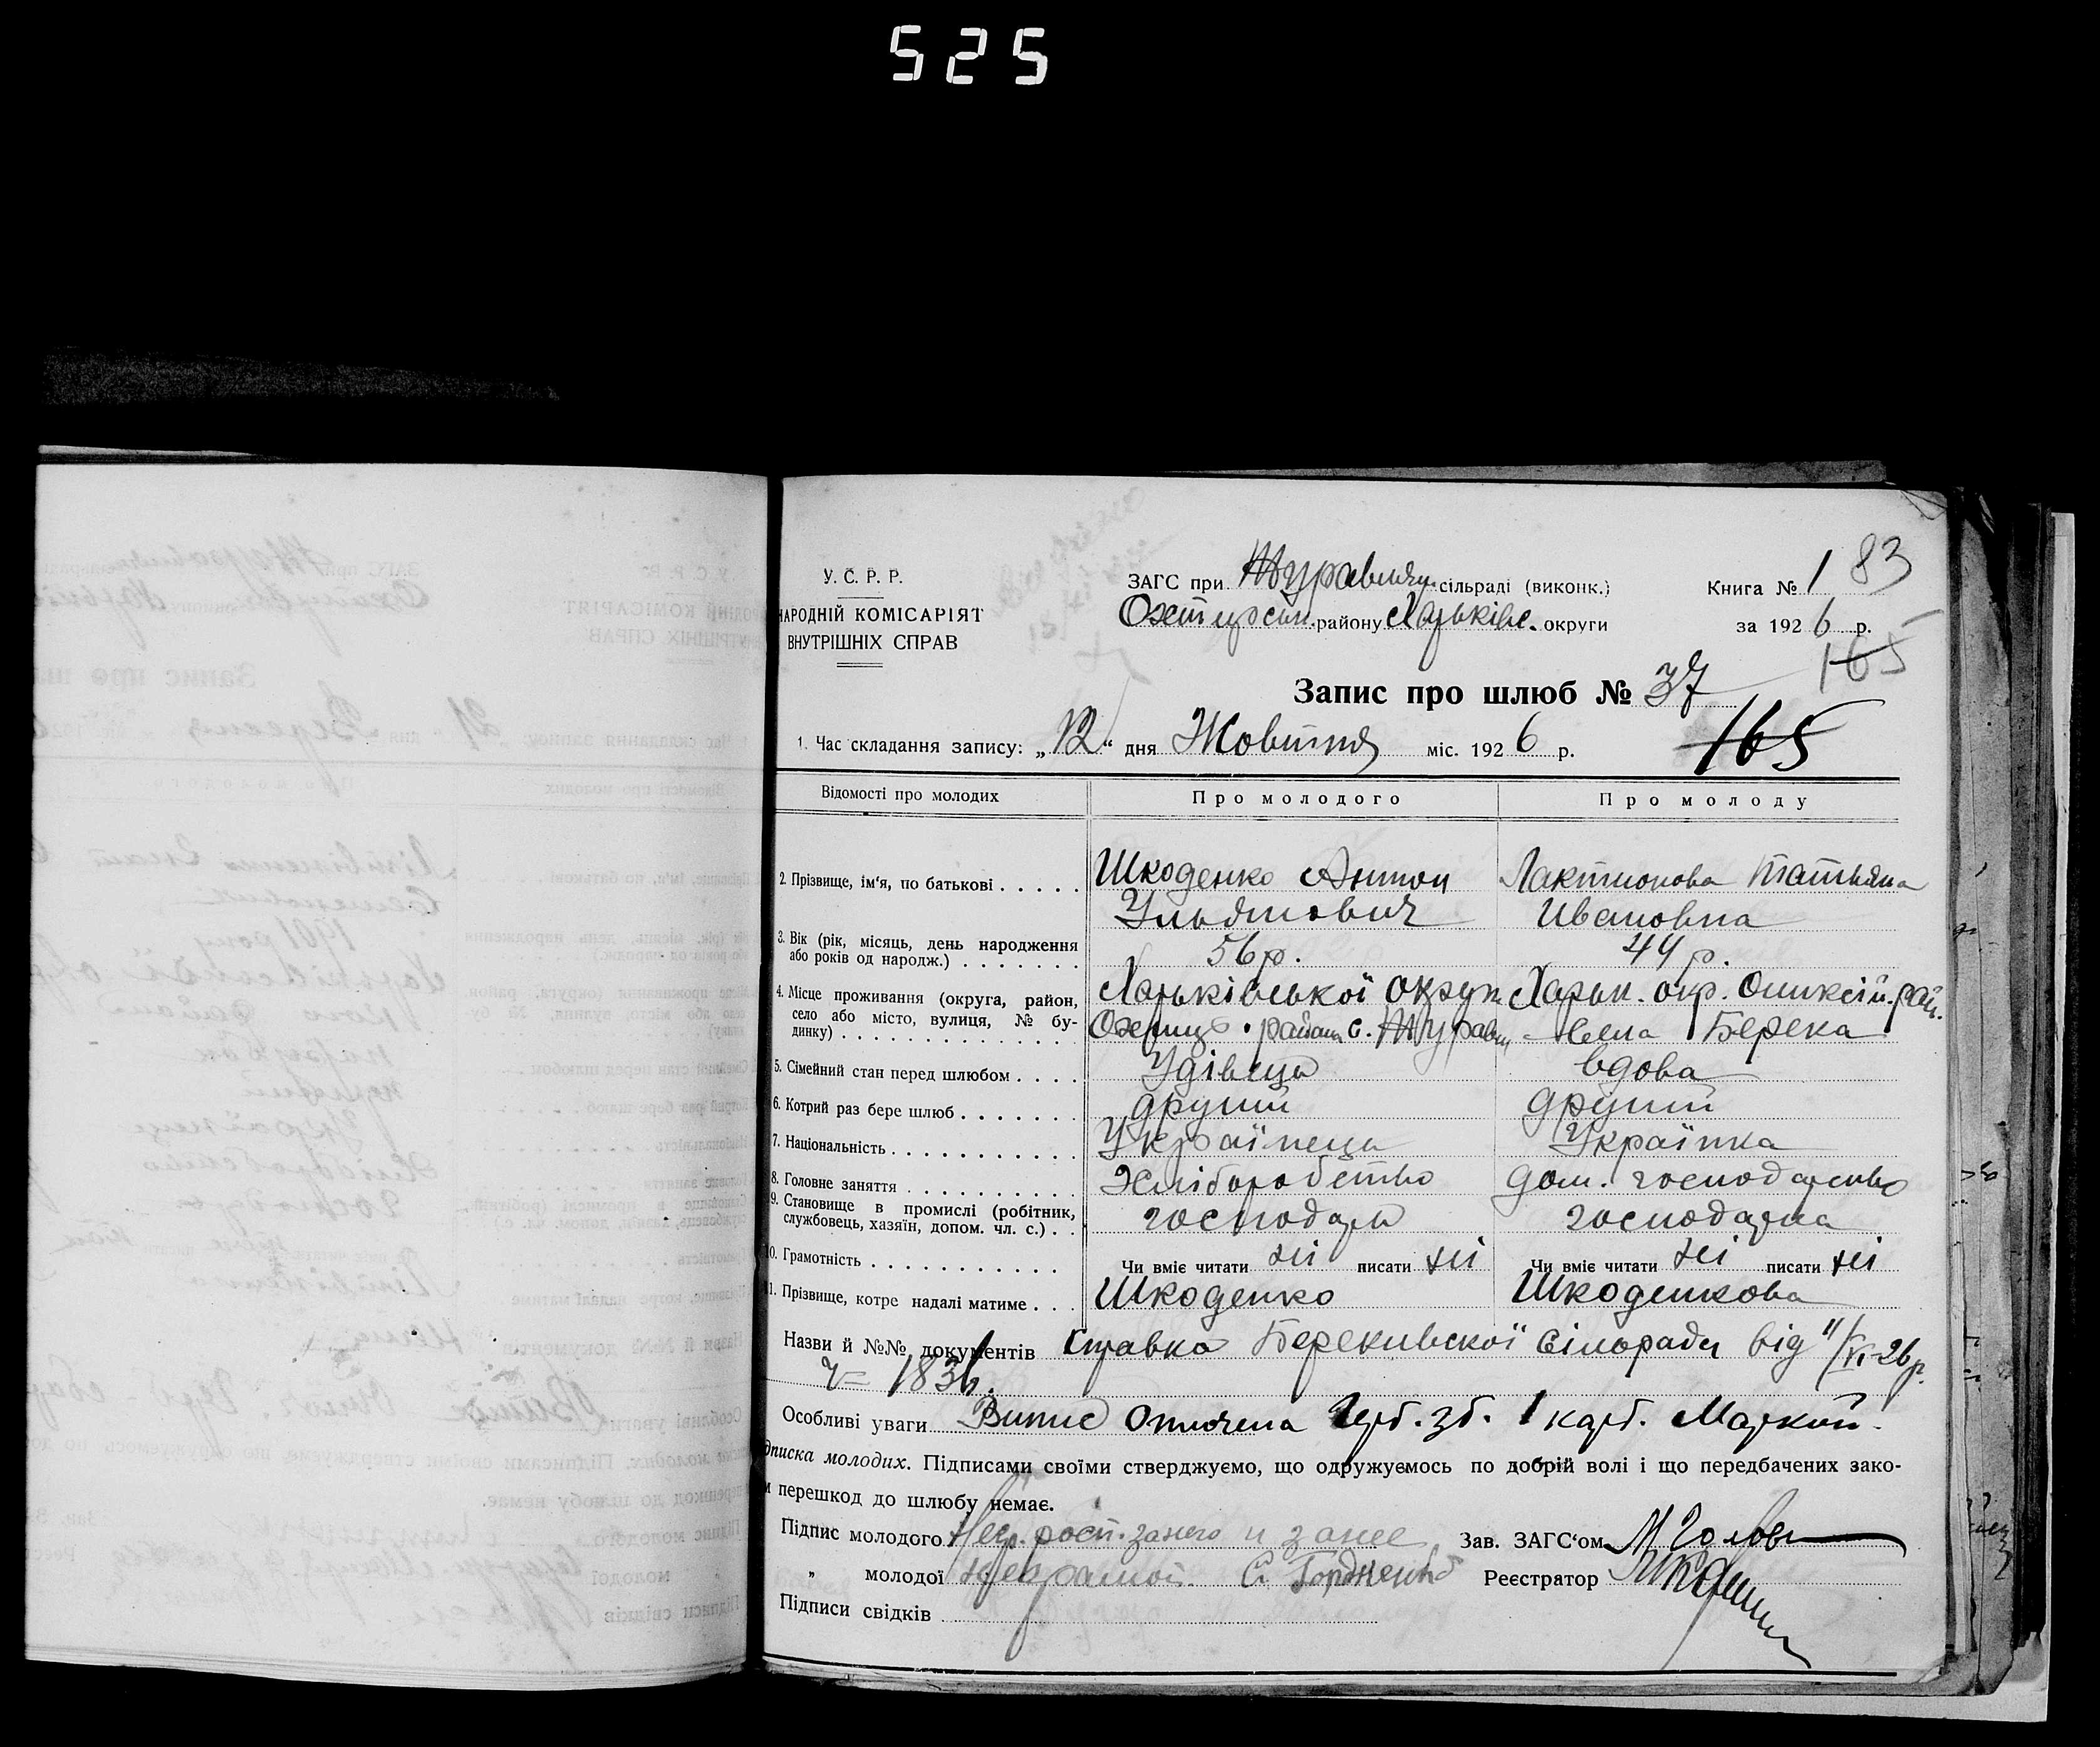 525
У. С. Р. Р.
НАРОДНІЙ КОМІСАРІЯТ
ВНУТРІШНІХ СПРАВ
ЗАГС при сільраді (виконк.)
району Харьківс. округи
Книга № 1 83
за 1926 р.
165
Запис про шлюб № 37
1. Час складання запису: „12“ дня Жовтня міс. 1926 р.
165
Відомості про молодих
Про молодого
Про молоду
2. Прізвище, ім‘я, по батькові . . . . .
Шкоденко Антон
Ульянович
Лактионова Татьяна
Ивановна
3. Вік (рік, місяць, день народження
або років од народж.) . . . . . . .
56 р.
44 р.
4. Місце проживання (округа, район,
село або місто, вулиця, № бу-
динку) . . . . . . . . . . . . . .
Харьківської округ
района с.
Харьк. окр. рай.
села Берека
5. Сімейний стан перед шлюбом . . . .
Удівець
вдова
6. Котрий раз бере шлюб . . . . . . .
другий
другий
7. Національність . . . . . . . . . . .
Українець
Українка
8. Головне заняття . . . . . . . . . .
Хліборобство
дом. господарство
9. Становище в промислі (робітник,
службовець, хазяїн, допом. чл. с.) . .
господарь
господарка
10. Грамотність . . . . . . . . . . .
Чи вміє читати ні писати ні
Чи вміє читати ні писати ні
11. Прізвище, котре надалі матиме . . .
Шкоденко
Шкоденкова
Назви й №№ документів Справка Берекивскої Сільради від 11/VI-26 р.
ч= 1836.
Особливі уваги Випис Оплочена Герб. зб. 1 карб. Маркой.
дписка молодих. Підписами своїми стверджуємо, що одружуємось по добрій волі і що передбачених зако-
м перешкод до шлюбу немає.
Підпис молодого Негр. росп. за него и за нее
Зав. ЗАГС‘ом
„ молодої неграмот.
Реєстратор
Підписи свідків